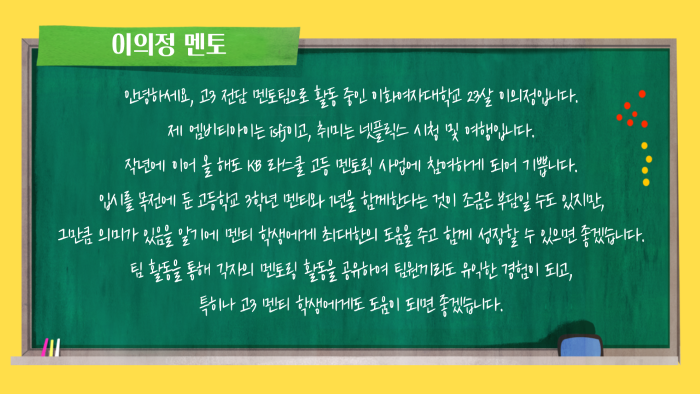 이의정 멘토
안녕하세요, 고3 전담 멘토팀으로 활동 중인 이화여자대학교 23살 이의정입니다.
제 엠비티아이는 isfj이고, 취미는 넷플릭스 시청 및 여행입니다.
작년에 이어 올 해도 KB 라스쿨 고등 멘토링 사업에 참여하게 되어 기쁩니다.
입시를 목전에 둔 고등학교 3학년 멘티와 1년을 함께한다는 것이 조금은 부담일 수도 있지만,
그만큼 의미가 있음을 알기에 멘티 학생에게 최대한의 도움을 주고 함께 성장할 수 있으면 좋겠습니다.
팀 활동을 통해 각자의 멘토링 활동을 공유하여 팀원끼리도 유익한 경험이 되고,
특히나 고3 멘티 학생에게도 도움이 되면 좋겠습니다.